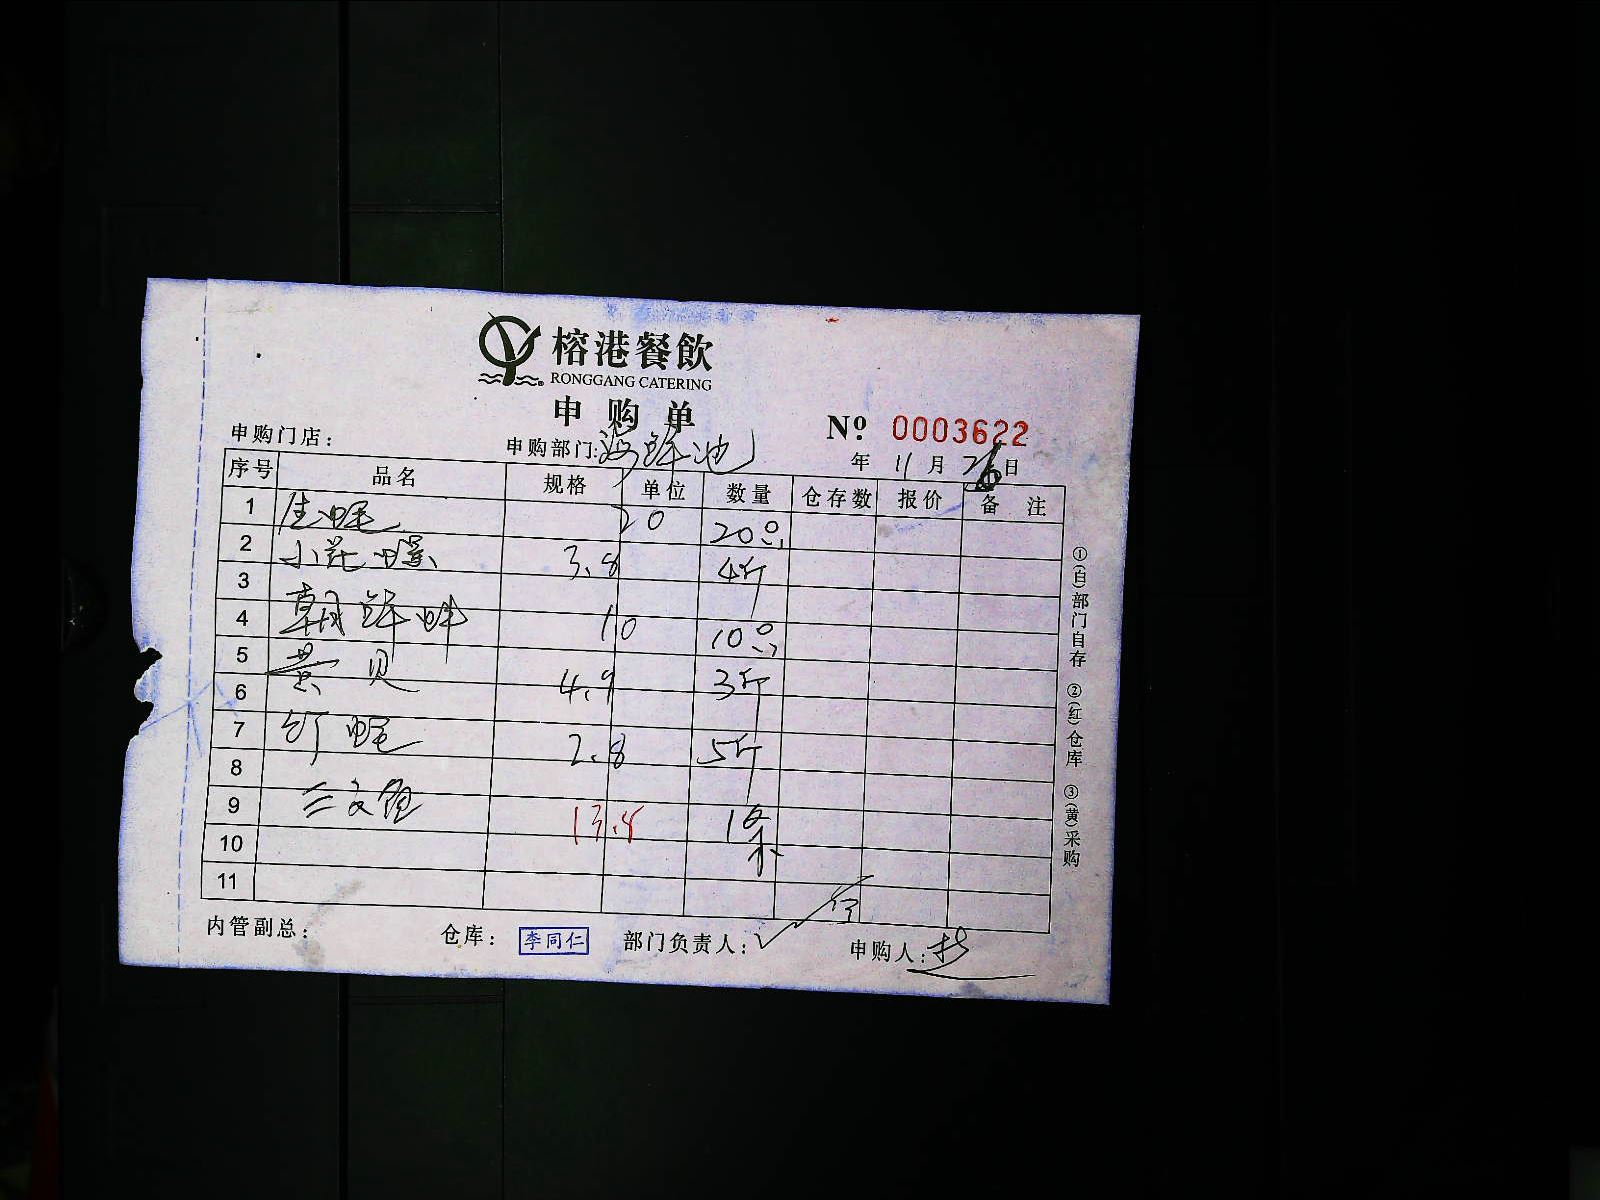 榕港餐飲
RONGGANG CATERING
申购单
№ 0003622
申购门店： 申购部门：海鲜池 年 11 月 26 日
序号 品名 规格 单位 数量 仓存数 报价 备注
1 生蚝 20 20只
2 小花螺 3.8 4斤
3
4 朝鲜蚌 10 10只
5 黄贝 4.9 3斤
6
7 竹蚝 2.8 5斤
8
9 三文鱼 13.8 1条
10
11
内管副总： 仓库： 李同仁 部门负责人： 申购人：
①(白)部门自存 ②(红)仓库 ③(黄)采购